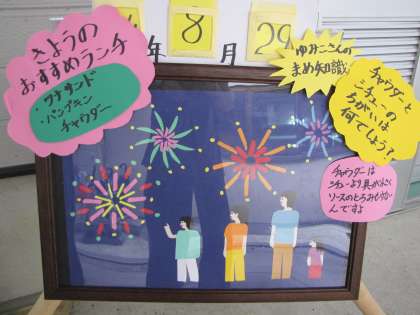 きょうの
おすすめランチ
・ツナサンド
・パンプキン
チャウダー
年 8月 29
ゆみこさんの
まめ知識
チャウダーと
シチューの
ちがいは
何でしょう?
チャウダーは
シチューより具が小さく
ソースのとろみも少ない
んですよ